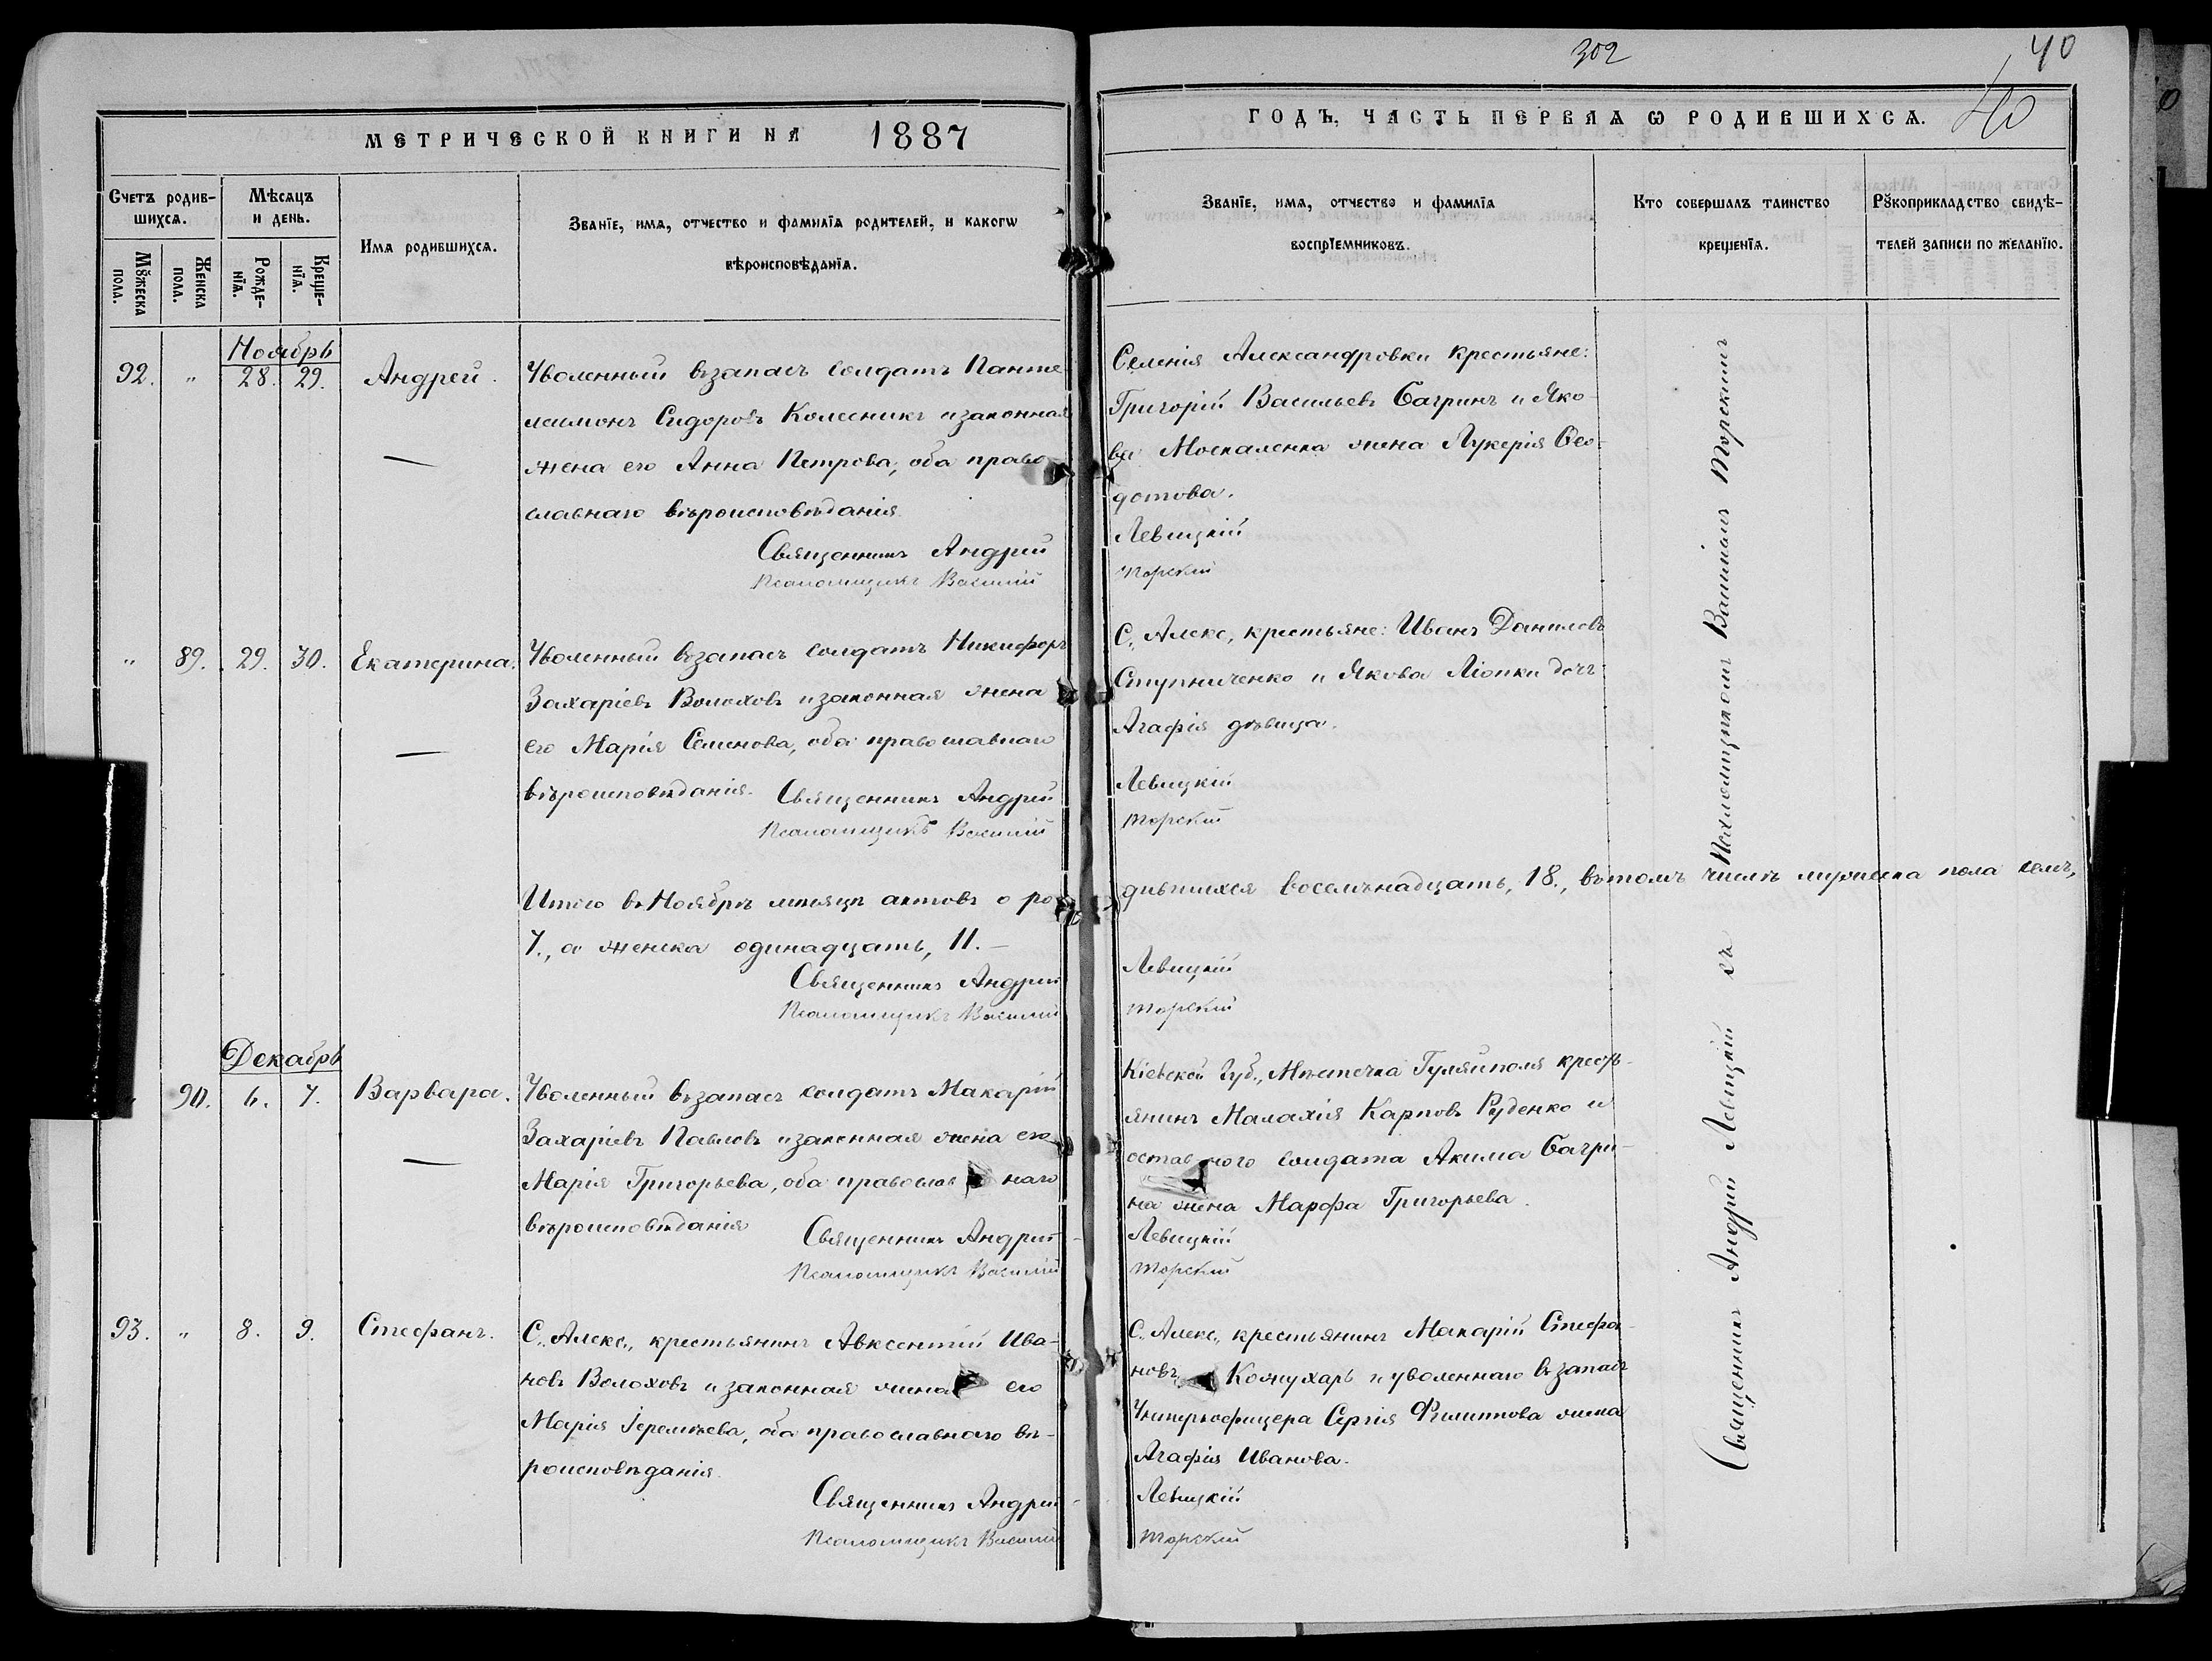 302
40
40
МЕТРИЧЕСКОЙ КНИГИ НА 1887
ГОДЪ, ЧАСТЬ ПЕРВАѦ Ѡ РОДИВШИХСѦ.
Счетъ родив-
шихсѧ.
Мѣсѧцъ
и день.
Мꙋжеска
пола.
Женска
пола.
Рожде-
нїѧ.
Креще-
нїѧ.
Имѧ родившихсѧ.
Званїе, имѧ, отчество и фамилїѧ родителей, и какогѡ
вѣроисповѣданїѧ.
Званїе, имѧ, отчество и фамилїѧ
воспрїемниковъ.
Кто совершалъ таинство
крещенїѧ.
Рꙋкоприкладство свидѣ-
телей записи по желанїю.
Ноябрь
92. " 28. 29. Андрей.
Уволенный въ запасъ солдатъ Панте
леимонъ Сидоровъ Колесникъ и законная
жена его Анна Петрова, оба право-
славнаго вѣроисповѣданія.
Священникъ Андрей
Псаломщикъ Василій
Селенія Александровки крестьяне:
Григорій Васильевъ Багринъ и Яко-
ва Москаленка жена Лукерія Ѳео-
дотова.
Левицкій
Торскій
" 89. 29. 30. Екатерина.
Уволенный въ запасъ солдатъ Никифоръ
Захаріевъ Волоховъ и законная жена
его Марія Семенова, оба православнаго
вѣроисповѣданія. Священникъ Андрей
Псаломщикъ Василій
С. Алекс, крестьяне: Иванъ Даниловъ
Ступниченко и Якова Ліопки дочь
Агафія дѣвица.
Левицкій
Торскій
Итого въ Ноябрѣ мѣсяцѣ актовъ о ро-
дившихся восемьнадцать, 18., въ томъ числѣ мужеска пола семь,
7., а женска одинадцать, 11.—
Священникъ Андрей
Псаломщикъ Василій
Левицкій
Торскій
Декабрь
" 90. 6. 7. Варвара.
Уволенный въ запасъ солдатъ Макарій
Захаріевъ Павловъ и законная жена его
Марія Григорьева, оба православнаго
вѣроисповѣданія Священникъ Андрей
Псаломщикъ Василій
Кіевской Губ., Мѣстечка Гуляйполя кресть-
янинъ Малахія Карповъ Руденко и
отставного солдата Акима Багри-
на жена Марфа Григорьева.
Левицкій
Торскій
93. " 8. 9. Стефанъ.
С. Алекс., крестьянинъ Авксентій Ива-
новъ Волоховъ и законная жена его
Марія Іеремѣева, оба православнаго вѣ-
роисповѣданія.
Священникъ Андрей
Псаломщикъ Василій
С. Алекс., крестьянинъ Макарій Стефа-
новъ Кожухарь и уволеннаго въ запасъ
Унтерь-офицера Сергія Филиппова жена
Агафія Иванова.
Левицкій
Торскій
Священникъ Андрей Левицкій съ Псаломщикомъ Василіемъ Торскимъ